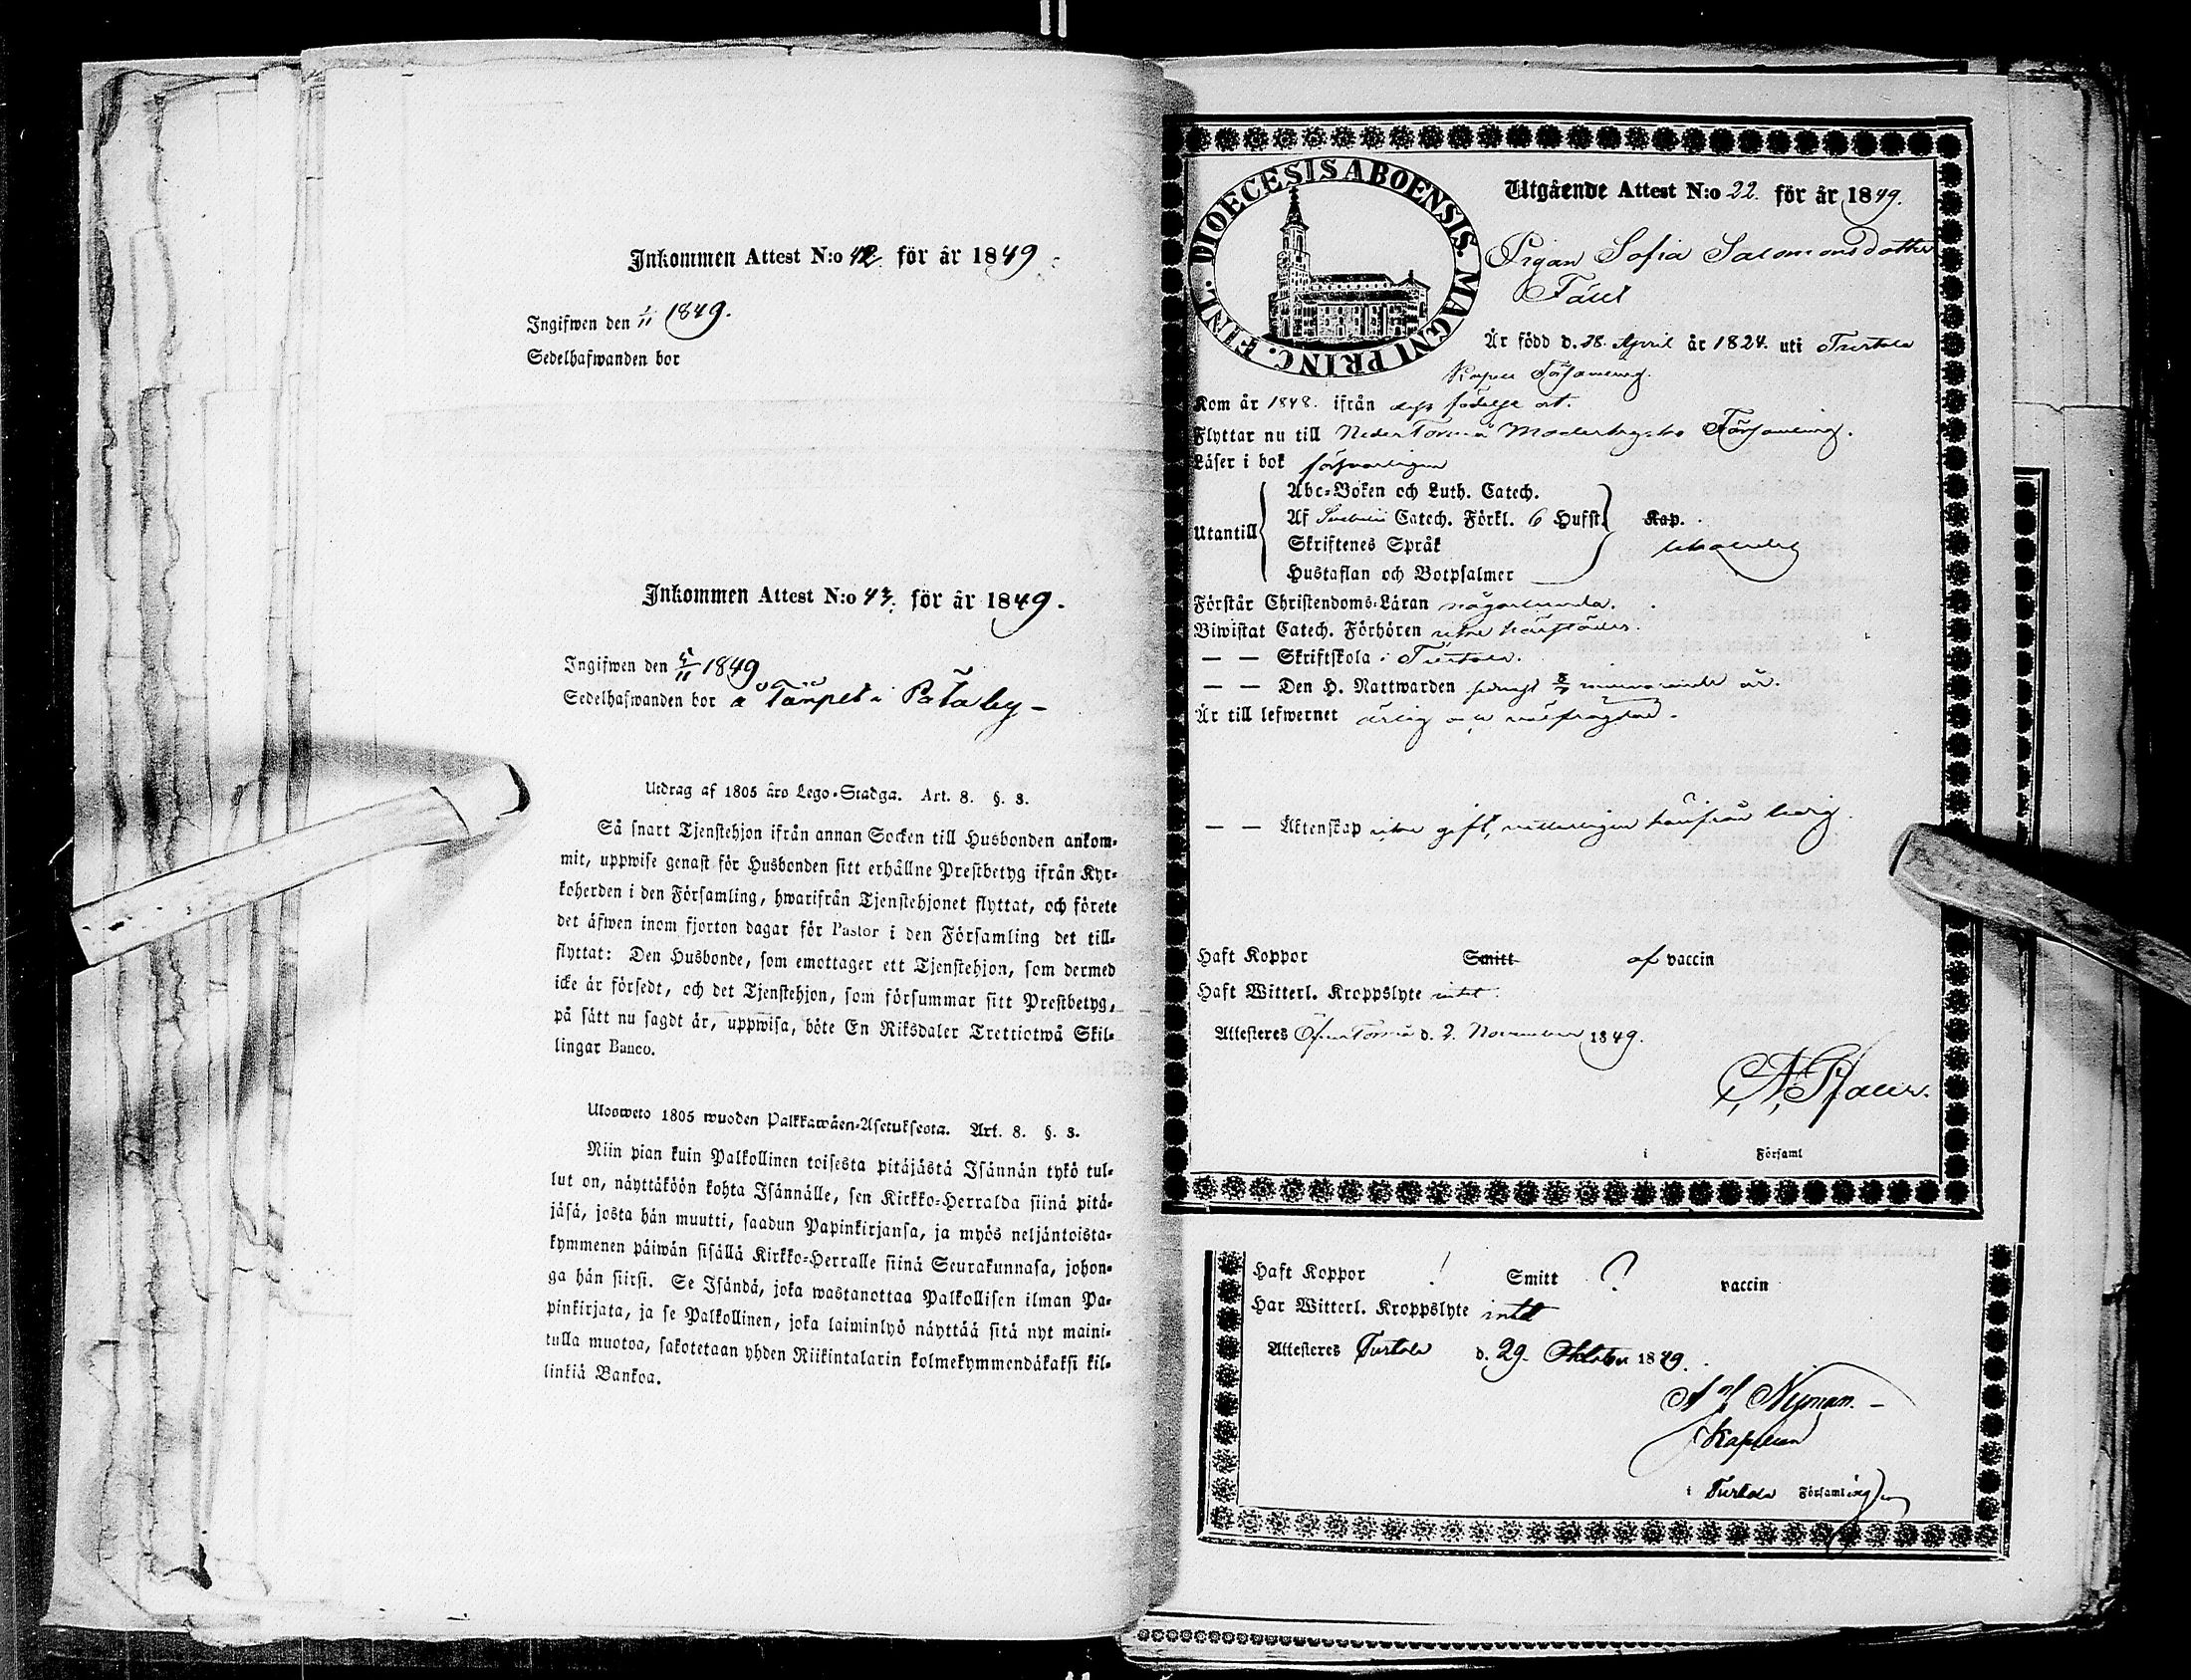 Inkommen Attest N:o 42. för år 1849.
Ingifwen den 1/11 1849.
Sedelhafwanden bor
Inkommen Attest N:o 43. för år 1849.
Ingifwen den 5/11 1849
Sedelhafwanden bor å i
Utdrag af 1805 års Lego-Stadga. Art. 8. §. 3.
Så snart Tjenstehjon ifrån annan Socken till Husbonden ankom-
mit, uppwise genast för Husbonden sitt erhållne Prestbetyg ifrån Kyr-
koherden i den Församling, hwarifrån Tjenstehjonet flyttat, och förete
det äfwen inom fjorton dagar för Pastor i den Församling det till-
flyttat: Den Husbonde, som emottager ett Tjenstehjon, som dermed
icke är försedt, och det Tjenstehjon, som försummar sitt Prestbetyg,
på sätt nu sagdt är, uppwisa, böte En Riksdaler Trettiotwå Skil-
lingar Banco.
Ulosweto 1805 wuoden Palkkawäen-Asetuksesta. Art. 8. §. 3.
Niin pian kuin Palkollinen toisesta pitäjästä Isännän tykö tul-
lut on, näyttäköön kohta Isännälle, sen Kirkko-Herralda siinä pitä-
jäsä, josta hän muutti, saadun Papinkirjansa, ja myös neljäntoista-
kymmenen päiwän sisällä Kirkko-Herralle siinä Seurakunnasa, johon-
ga hän siirsi. Se Isändä, joka wastanottaa Palkollisen ilman Pa-
pinkirjata, ja se Palkollinen, joka laiminlyö näyttää sitä nyt maini-
tulla muotoa, sakotetaan yhden Riikintalarin kolmekymmendäkaksi kil-
linkiä Bankoa.
DIOECESIS ABOENSIS. MAGNI PRINC. FINL.
Utgående Attest N:o 22. för år 1849.
Pigan Sofia Salomonsdotter
Är född d. 28. April år 1824. uti Turtola
Kapell Församling.
Kom år 1848. ifrån dess födelse ort.
Flyttar nu till Neder Torneå Moderkyrko Församling.
Läser i bok försvarligen
Utantill
Abc-Boken och Luth. Catech.
Af Svebelii Catech. Förkl. 6 Hufst. Kap.
Skriftenes Språk
Hustaflan och Botpsalmer
Förstår Christendoms-Läran någorlunda.
Biwistat Catech. Förhören
— — Skriftskola i Turtola.
— — Den H. Nattwarden sednast 8/7 innevarande år.
Är till lefwernet ärlig och välfrägdad.
— — Äktenskap icke gift, vetterligen härifrån ledig.
Haft Koppor Smitt af vaccin
Haft Witterl. Kroppslyte intet.
Attesteres Öfver Torneå d. 2. November 1849.
i Församl
Haft Koppor ! Smitt ? vaccin
Har Witterl. Kroppslyte intet
Attesteres Turtola d. 29. Oktober 1849.
Nyman.
Kapellan
i Turtola Församling